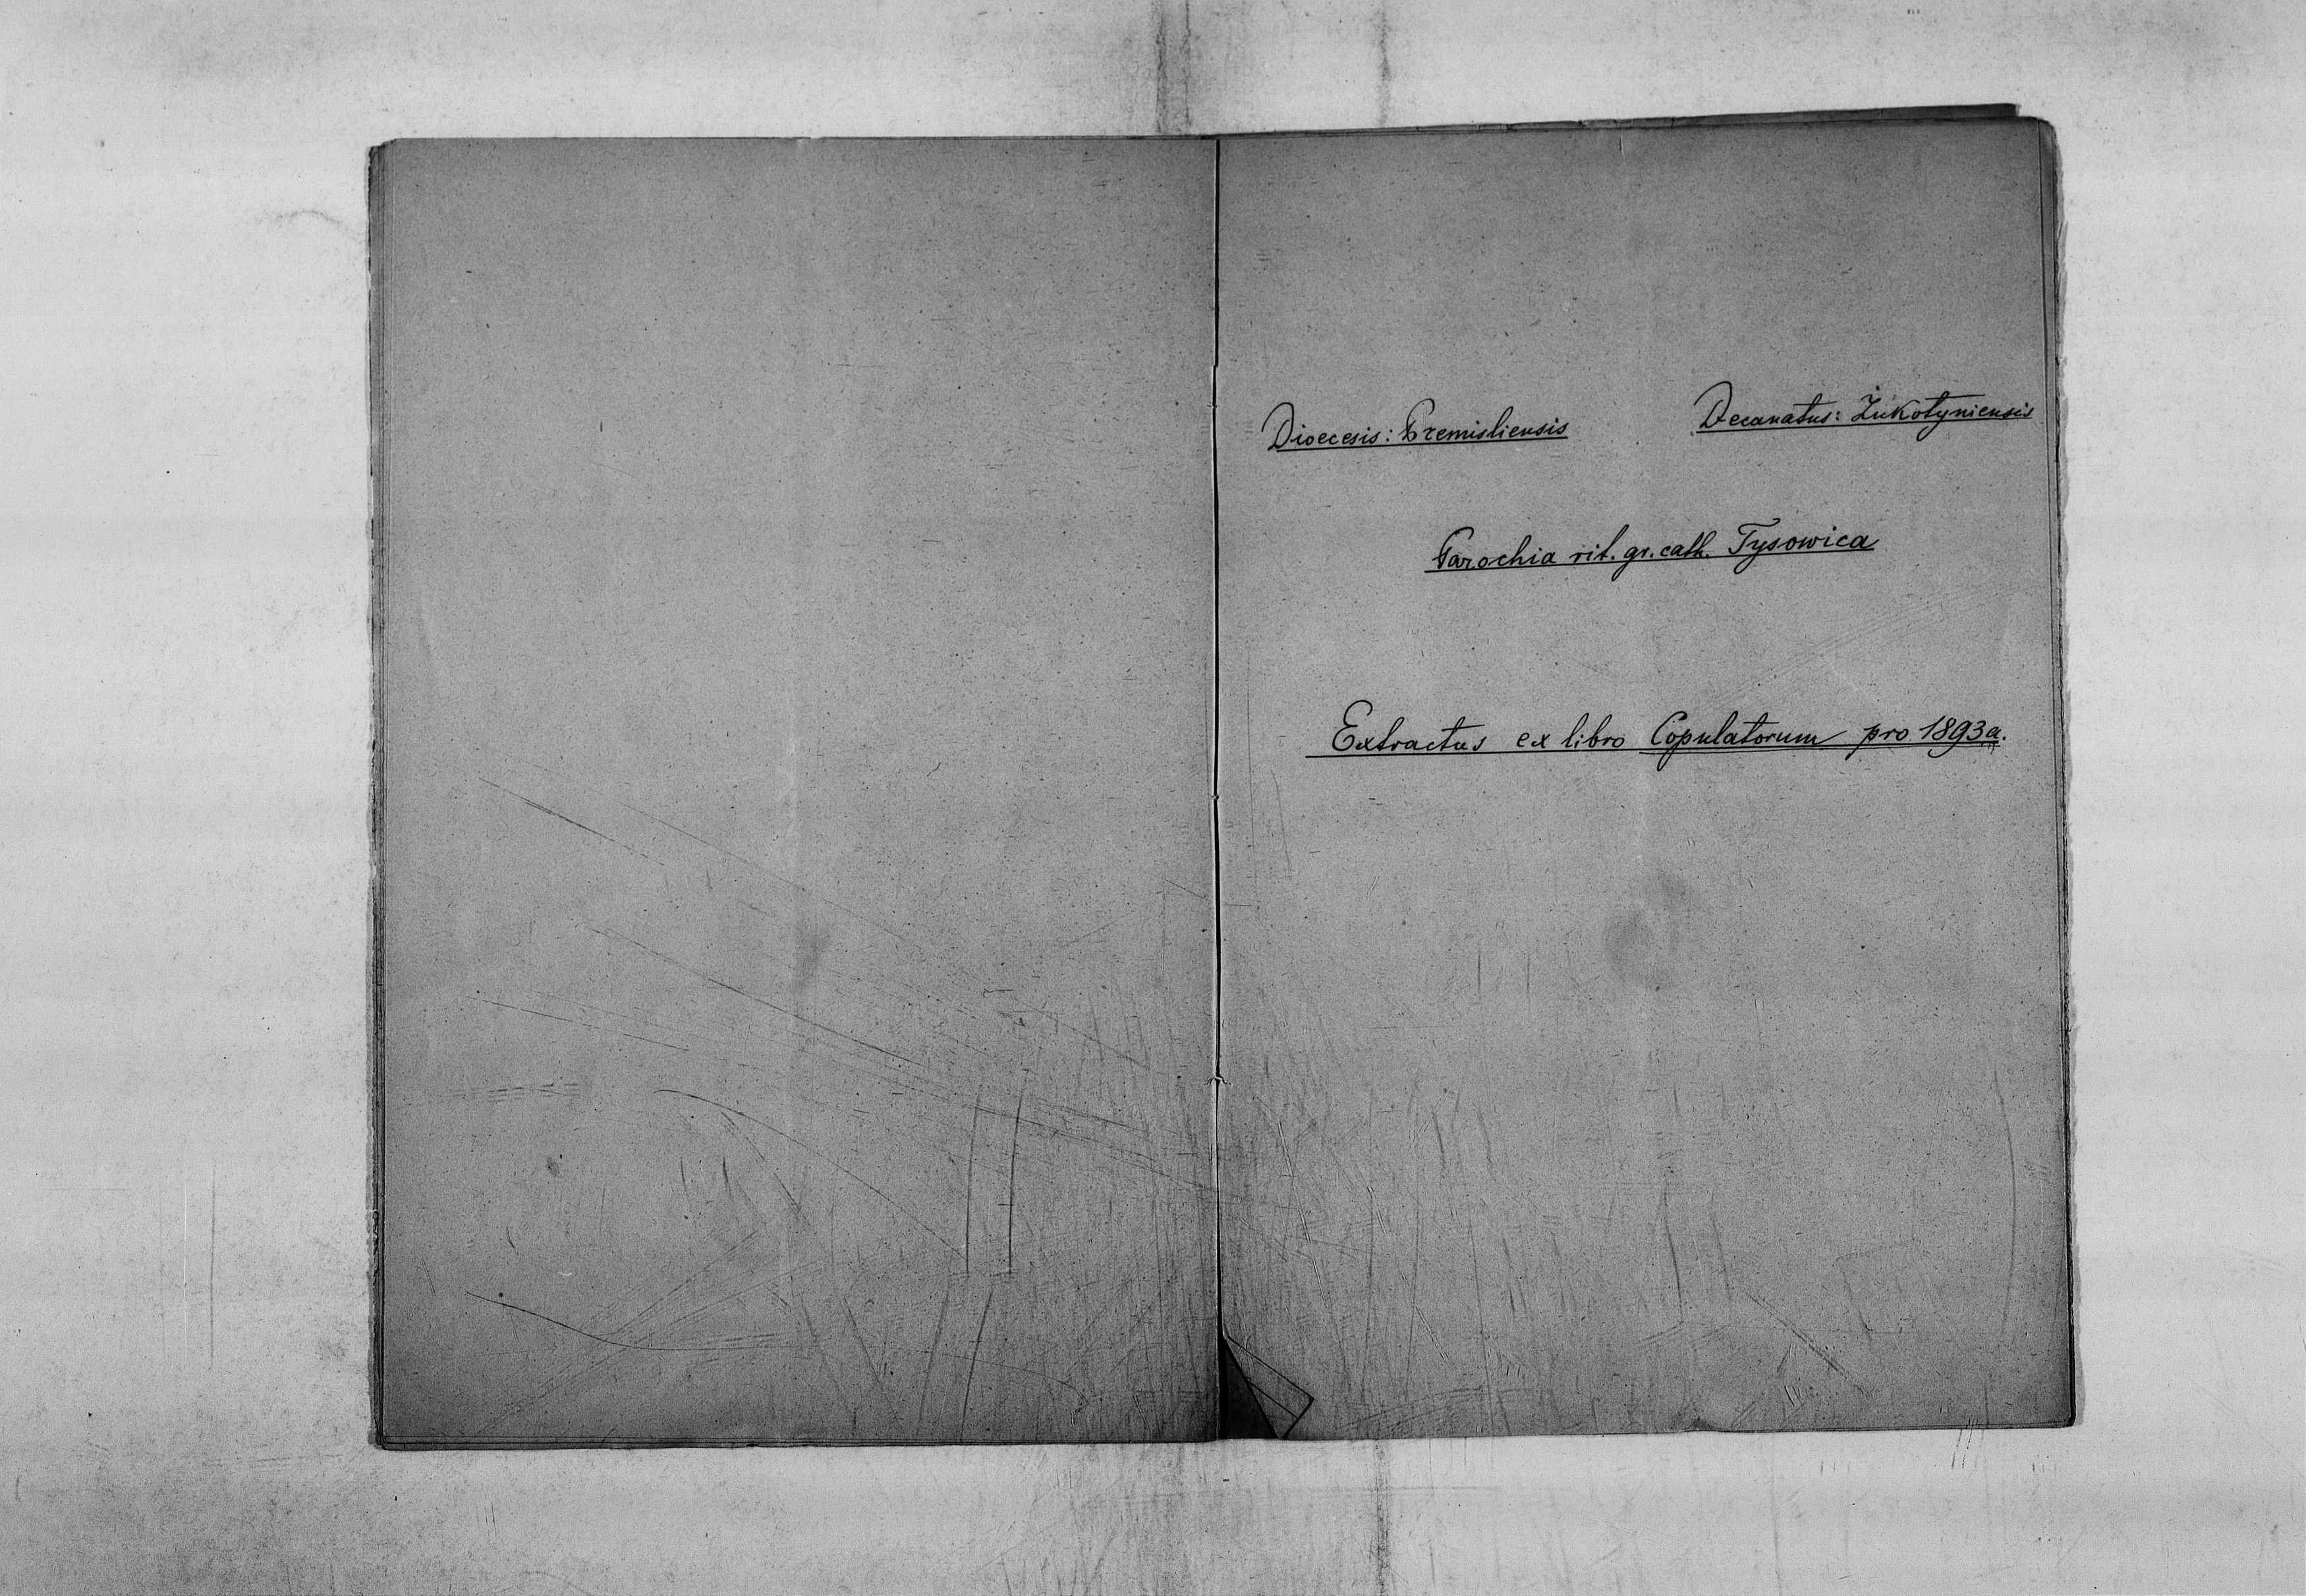 Dioecesis: Premisliensis Decanatus: Żukotyniensis
Parochia rit. gr. cath. Tysowica
Extractus ex libro Copulatorum pro 1893 a.